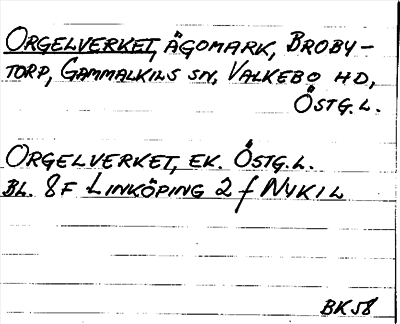 ORGELVERKET, ÄGOMARK, BROBY-
TORP, GAMMALKILS SN, VALKEBO HD,
ÖSTG.L.
ORGELVERKET, EK. ÖSTG.L.
BL. 8F LINKÖPING 2 f NYKIL
BK 58